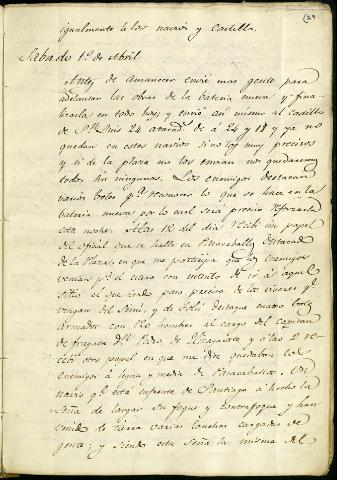 (29
igualmente á los navios y Castillo.
Sabado 1º de Abril
Antes de amanecer envié mas gente para
adelantar las obras de la bateria nueva y fina-
lizarla en todo hoy y envié asi mismo al Castillo
de Sn. Luis 24 atacad.s de á 24 y 18 y ya no
quedan en estos navios sino los muy precisos
y si de la plaza no los envian nos quedaremos
todos sin ningunos. Los enemigos destacan
varios botes p.a reconocer lo que se hace en la
bateria nueva por lo cual será preciso reforzarla
esta noche. A las 12 del dia recibí un papel
del oficial que se halla en Pasacaballos destacado
de la Plaza, en que me participa que los enemigos
venian p.r el estero con intento de ir á aquel
sitio el que siendo paso preciso de los viveres q.e
vengan del Sinú, y de Tolú destaque cuatro botes
armados con 100 hombres al cargo del capitan
de fragata Dn. Pedro de Elizagarate y á las 2 re-
cibí otro papel en que me dice quedaban los
enemigos á legua y media de Pasacaballos. Un
navio q.e está enfrente de Santiago á hecho la
seña de largar su foque y contrafoque y han
venido de tierra varias lanchas cargadas de
gente; y siendo esta seña la misma del